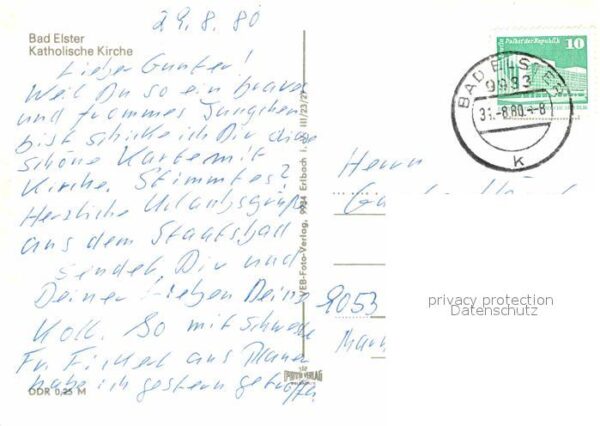 29.8.80
Bad Elster
Katholische Kirche
Lieber Gunter!
Weil Du so ein braver
und frommes Jungchen
bist schicke ich Dir diese
schöne Karte mit
Kirche. Stimmtes?
Herzliche Urlaubsgrüße
aus dem Staatsbad
sendet Dir und
Deiner Lieben Deine
Koll. So mit
Fr. aus
habe ich gestern getroffen
DDR 0,25 M
VEB-Foto-Verlag, 9934 Erlbach III/23/27
Palast der Republik
10
BAD ELSTER
9933
31.-8.80.-8
k
Herrn
9053
privacy protection
Datenschutz